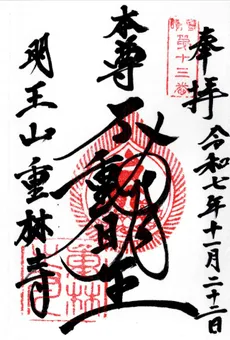 奉拝
令和七年十一月二十二日
本尊
不動明王
明王山重林寺
第十三番
重林寺